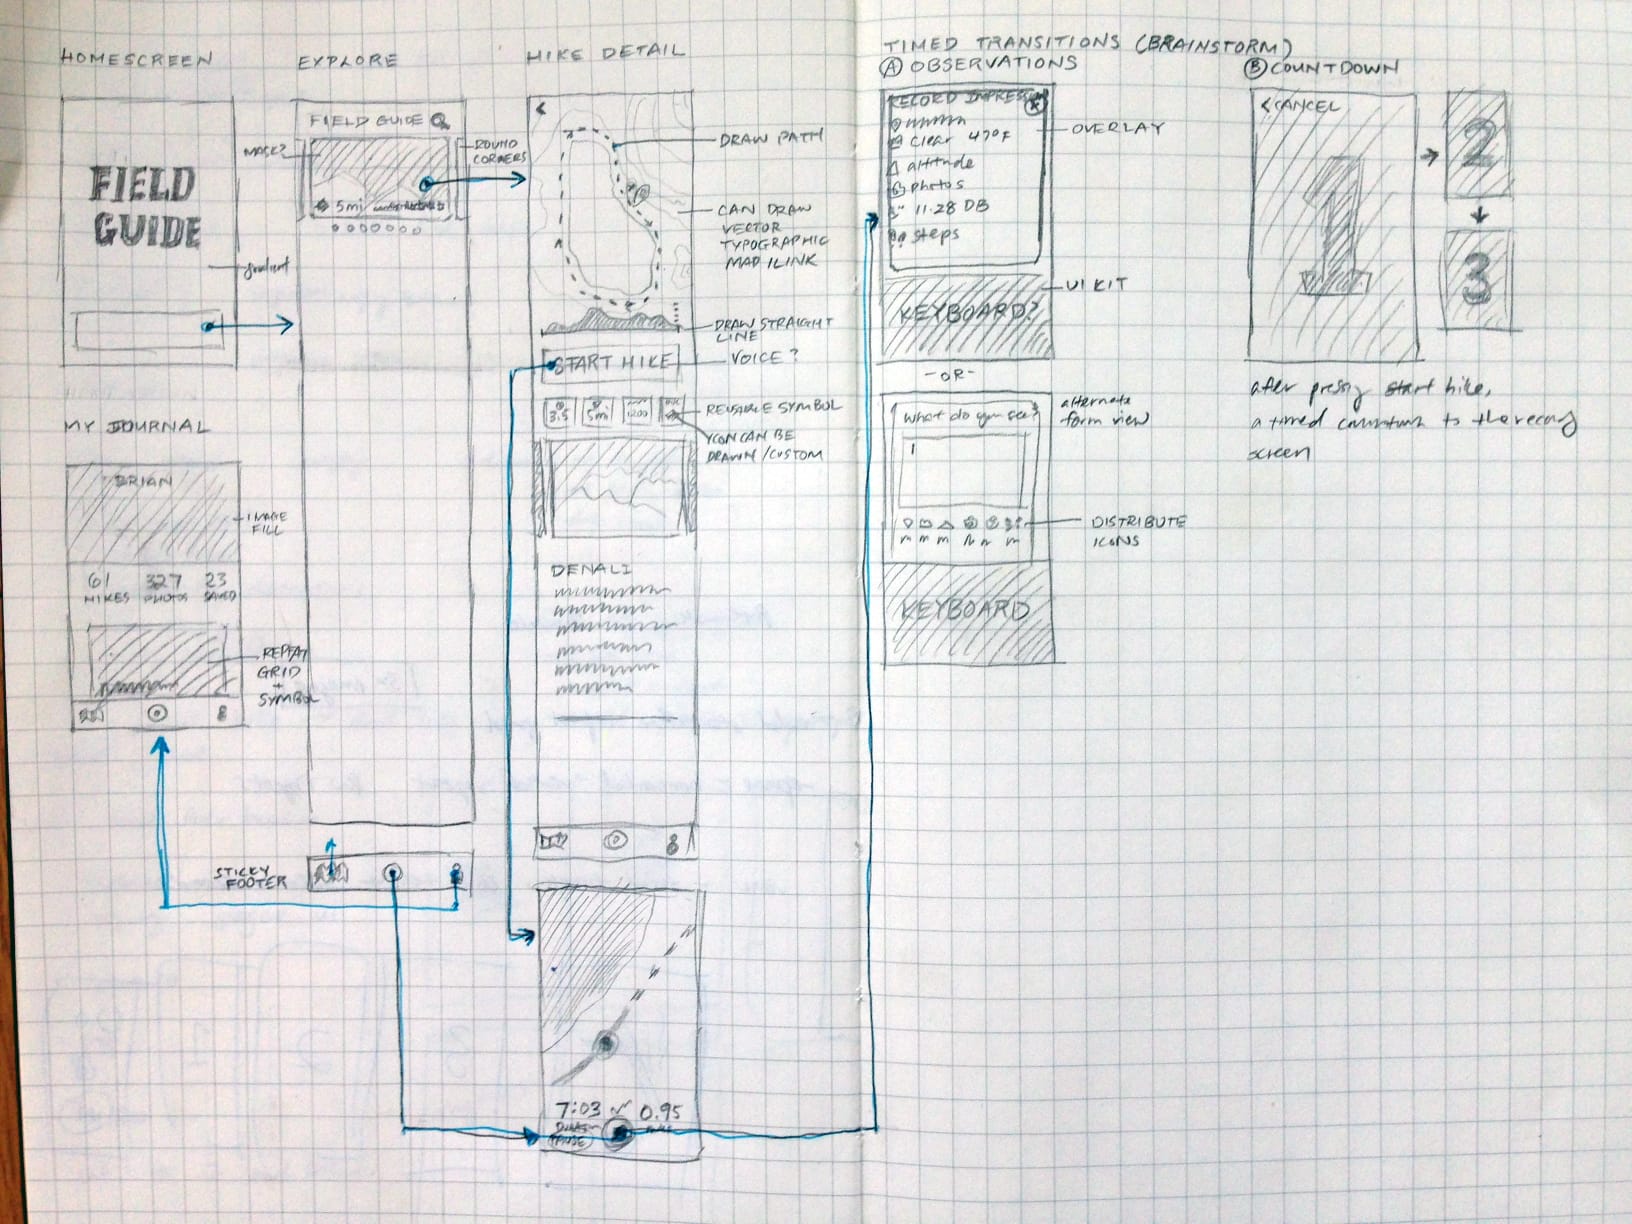 HOMESCREEN
FIELD
GUIDE
gradient
EXPLORE
FIELD GUIDE
MASK?
ROUND
CORNERS
5mi
HIKE DETAIL
<
DRAW PATH
CAN DRAW
VECTOR
TYPOGRAPHIC
MAP
DRAW STRAIGHT
LINE
START HIKE
VOICE?
3.5
5mi
1200
REUSABLE SYMBOL
ICON CAN BE
DRAWN / CUSTOM
DENALI
MY JOURNAL
BRIAN
IMAGE
FILL
61 327 23
HIKES PHOTOS SAVED
REPEAT
GRID
+
SYMBOL
STICKY
FOOTER
7:03 0.95
TIMED TRANSITIONS (BRAINSTORM)
A OBSERVATIONS
RECORD
X
clear 47°F
altitude
photos
11.28 DB
steps
OVERLAY
UI KIT
KEYBOARD?
-OR-
alternate
form view
What do you see?
DISTRIBUTE
ICONS
KEYBOARD
B COUNTDOWN
<CANCEL
1
2
3
after pressing start hike,
a timed countdown to the
screen